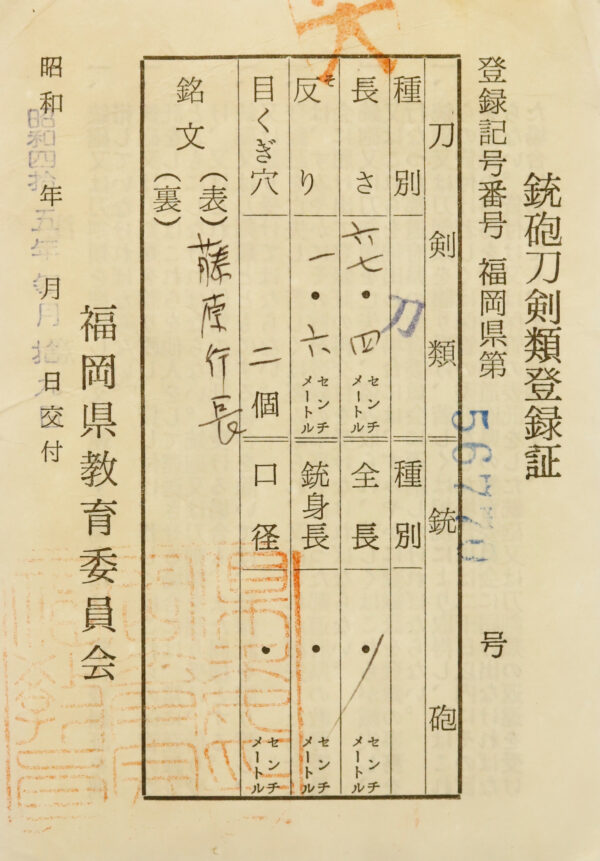 銃砲刀剣類登録証
登録記号番号 福岡県第 56770 号
刀剣類 銃砲
種別 刀 種別
長さ 六七・四 センチメートル 全長 ・ センチメートル
反り そ 一・六 センチメートル 銃身長 ・ センチメートル
目くぎ穴 二個 口径 ・ センチメートル
銘文 (表) 藤原行長
(裏)
福岡県教育委員会
昭和 年 月 日交付
昭和四拾五年
大